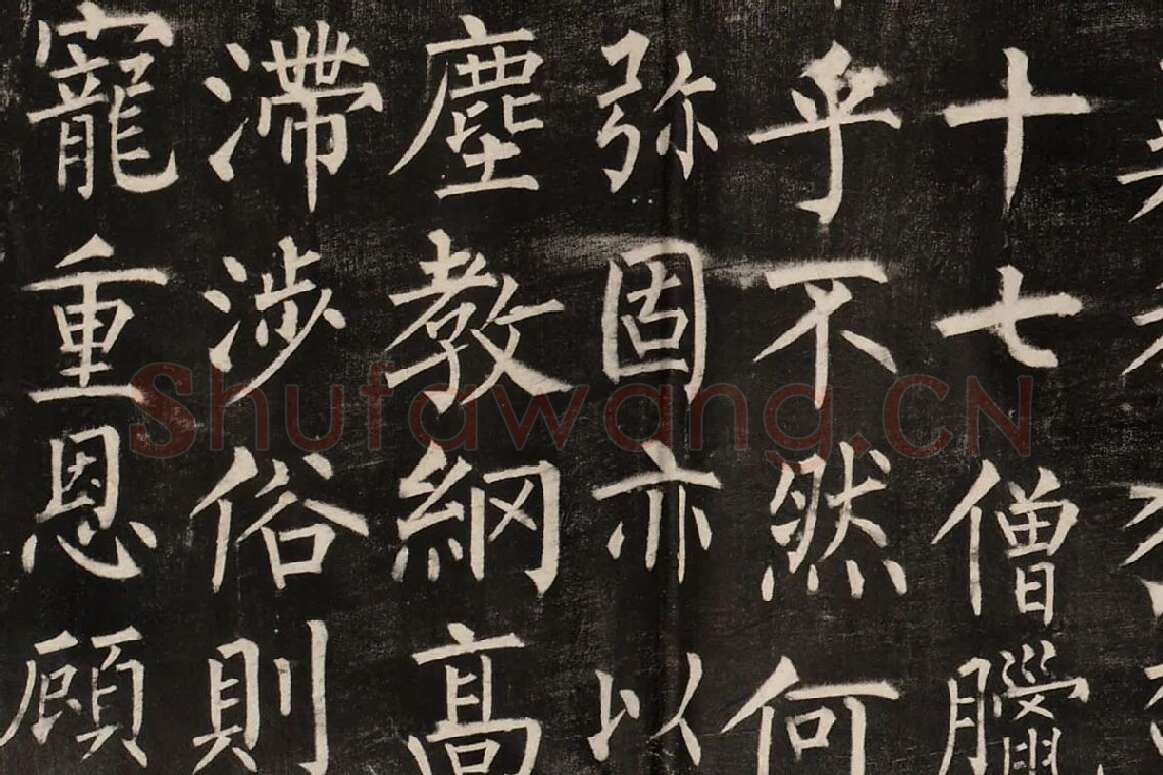 十七僧臘
乎不然何
弥固亦以
塵教綱髙
滯涉俗則
寵重恩顧
Shufawang.CN